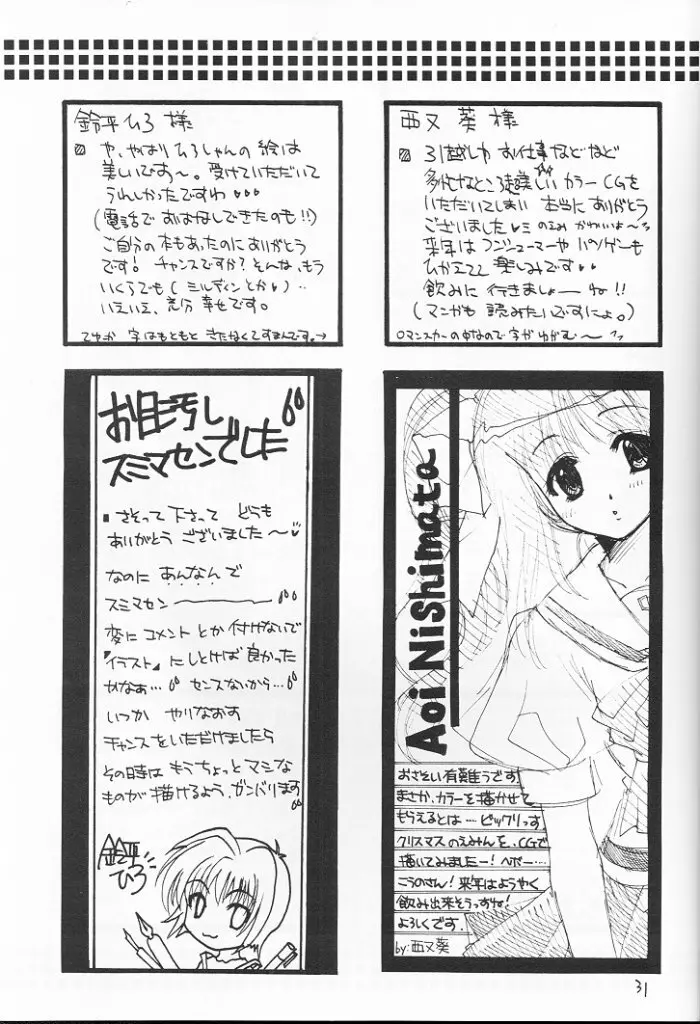 鈴平ひろ様
や、やはり ひろしゃんの 絵は
美しいです〜。受けていただいて
うれしかったですわ
(電話で おはなしできたのも!!)
ご自分の本もあったのに ありがとう
です! チャンスですか? そんな、もう
いくらでも(ミルディンとか)‥
いえいえ、充分 幸せです。
てゆか 字はもともと きたなくてすまんです。→
西又 葵 様
お仕事などなど
多忙なところ 美しい カラーCGを
いただいてしまい 本当に ありがとう
ございました のえみ かわいいよ〜
来年は コンシューマーや パソゲーも
ひかえてて 楽しみです
飲みに 行きましょーね!!
(マンガも 読みたいですにょ。)
ロマンスカーの中なので字が ゆがむ〜
お目汚し
スミマセンでした
さそって下さって どうも
ありがとう ございました〜
なのに あんなんで
スミマセン
変に コメント とか 付けないで
『イラスト』にしとけば 良かった
かなぁ… センスないから…
いつか やりなおす
チャンスをいただけましたら
その時は もうちょっと マシな
ものが 描けるよう、ガンバります
鈴平
ひろ
Aoi Nishimata
おさそい有難うです
まさか、カラーを描かせて
もらえるとは…ビックリっす
クリスマスのえみんを、CGで
描いてみましたー!ヘボー…
こうのさん!来年はようやく
飲み出来そうっすね!
よろしくです。
by:西又葵
31